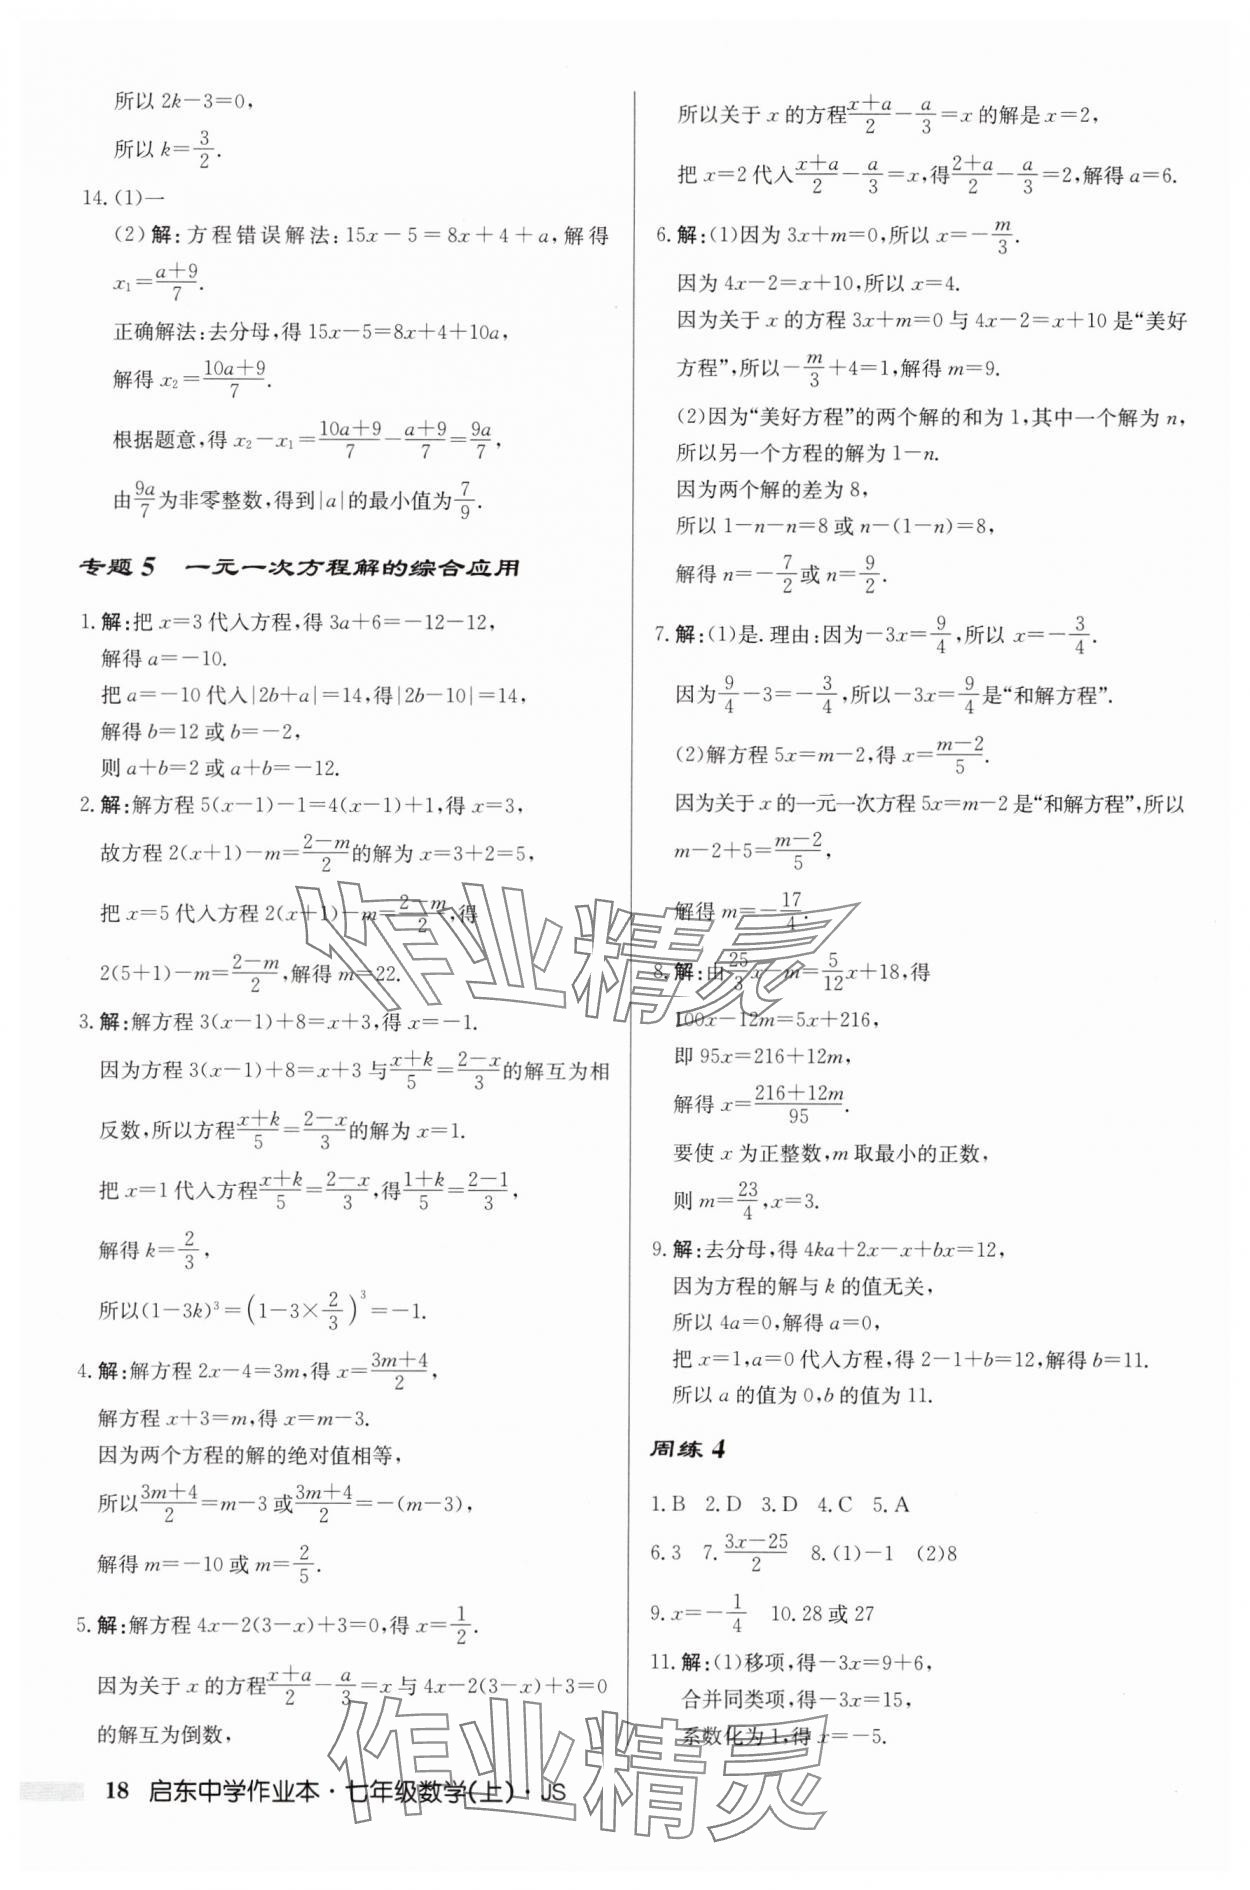 所以 2k－3＝0，
所以 k＝3/2．
14.(1)一
(2)解：方程错误解法：15x－5＝8x＋4＋a，解得
x₁＝(a＋9)/7．
正确解法：去分母，得 15x－5＝8x＋4＋10a，
解得 x₂＝(10a＋9)/7．
根据题意，得 x₂－x₁＝(10a＋9)/7－(a＋9)/7＝9a/7，
由9a/7为非零整数，得到|a|的最小值为7/9．
专题 5 一元一次方程解的综合应用
1.解：把 x＝3 代入方程，得 3a＋6＝－12－12，
解得 a＝－10．
把 a＝－10 代入|2b＋a|＝14，得|2b－10|＝14，
解得 b＝12 或 b＝－2，
则 a＋b＝2 或 a＋b＝－12．
2.解：解方程 5(x－1)－1＝4(x－1)＋1，得 x＝3，
故方程 2(x＋1)－m＝(2－m)/2的解为 x＝3＋2＝5，
把 x＝5 代入方程 2(x＋1)－m＝(2－m)/2，得
2(5＋1)－m＝(2－m)/2，解得 m＝22．
3.解：解方程 3(x－1)＋8＝x＋3，得 x＝－1．
因为方程 3(x－1)＋8＝x＋3 与(x＋k)/5＝(2－x)/3的解互为相
反数，所以方程(x＋k)/5＝(2－x)/3的解为 x＝1．
把 x＝1 代入方程(x＋k)/5＝(2－x)/3，得(1＋k)/5＝(2－1)/3，
解得 k＝2/3，
所以(1－3k)³＝(1－3×2/3)³＝－1．
4.解：解方程 2x－4＝3m，得 x＝(3m＋4)/2，
解方程 x＋3＝m，得 x＝m－3．
因为两个方程的解的绝对值相等，
所以(3m＋4)/2＝m－3 或(3m＋4)/2＝－(m－3)，
解得 m＝－10 或 m＝2/5．
5.解：解方程 4x－2(3－x)＋3＝0，得 x＝1/2．
因为关于 x 的方程(x＋a)/2－a/3＝x 与 4x－2(3－x)＋3＝0
的解互为倒数，
所以关于 x 的方程(x＋a)/2－a/3＝x 的解是 x＝2，
把 x＝2 代入(x＋a)/2－a/3＝x，得(2＋a)/2－a/3＝2，解得 a＝6．
6.解：(1)因为 3x＋m＝0，所以 x＝－m/3．
因为 4x－2＝x＋10，所以 x＝4．
因为关于 x 的方程 3x＋m＝0 与 4x－2＝x＋10 是“美好
方程”，所以－m/3＋4＝1，解得 m＝9．
(2)因为“美好方程”的两个解的和为 1，其中一个解为 n，
所以另一个方程的解为 1－n．
因为两个解的差为 8，
所以 1－n－n＝8 或 n－(1－n)＝8，
解得 n＝－7/2或 n＝9/2．
7.解：(1)是．理由：因为－3x＝9/4，所以 x＝－3/4．
因为9/4－3＝－3/4，所以－3x＝9/4是“和解方程”．
(2)解方程 5x＝m－2，得 x＝(m－2)/5．
因为关于 x 的一元一次方程 5x＝m－2 是“和解方程”，所以
m－2＋5＝(m－2)/5，
解得 m＝－17/4．
8.解：由25/3x－m＝5/12x＋18，得
100x－12m＝5x＋216，
即 95x＝216＋12m，
解得 x＝(216＋12m)/95．
要使 x 为正整数，m 取最小的正数，
则 m＝23/4，x＝3．
9.解：去分母，得 4ka＋2x－x＋bx＝12，
因为方程的解与 k 的值无关，
所以 4a＝0，解得 a＝0，
把 x＝1，a＝0 代入方程，得 2－1＋b＝12，解得 b＝11．
所以 a 的值为 0，b 的值为 11．
周练 4
1.B 2.D 3.D 4.C 5.A
6.3 7.(3x－25)/2 8.(1)－1 (2)8
9.x＝－1/4 10.28 或 27
11.解：(1)移项，得－3x＝9＋6，
合并同类项，得－3x＝15，
系数化为 1，得 x＝－5．
18 启东中学作业本·七年级数学(上)·JS
作业精灵
作业精灵